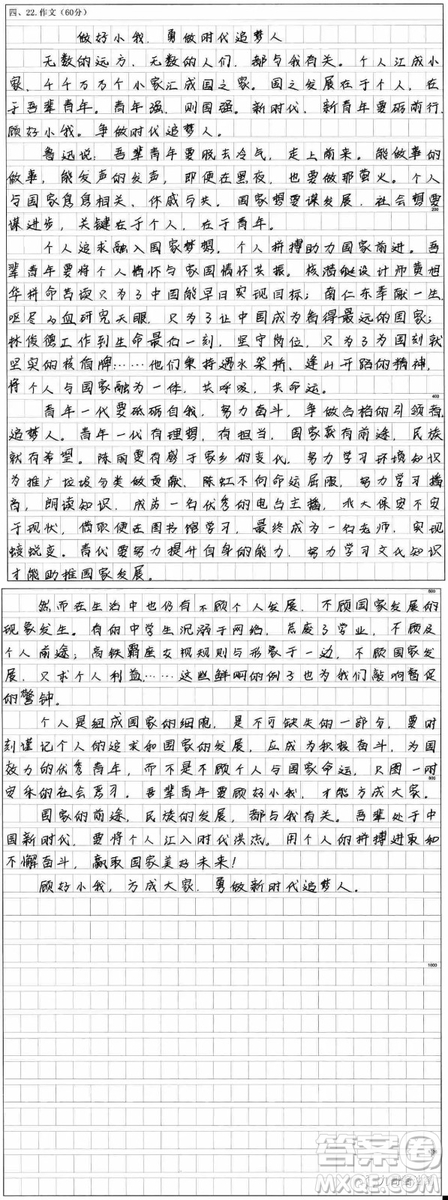 四、22.作文(60分)
做好小我,勇做时代追梦人
无数的远方,无数的人们,都与我有关。个人汇成小
家,千千万万个小家汇成国之家。国之发展在于个人,在
于吾辈青年。青年强,则国强。新时代,新青年要砥砺前行,
顾好小我。争做时代追梦人。
鲁迅说:吾辈青年要脱去冷气,走上前来。能做事的
做事,能发声的发声,即便在黑夜,也要做那萤火。个人
与国家息息相关、休戚与共。国家想要谋发展,社会想要
谋进步,关键在于个人,在于青年。
200
个人追求融入国家梦想,个人拼搏助力国家前进。吾
辈青年要将个人情怀与家国情怀共振。核潜艇设计师黄旭
华拼命
只为了中国能早日实现目标;南仁东奉献一生
呕尽心血研究天眼,只为了让中国成为看得最远的国家;
林俊德工作到生命最后一刻,坚守岗位,只为了为国刻就
坚实的核盾牌……他们秉持遇水架桥、逢山开路的精神,
将个人与国家融为一体,共呼吸,共命运。
400
青年一代要砥砺自我,努力奋斗,争做合格的引领者
追梦人。青年一代有理想,有担当,国家就有前途,民族
就有希望。陈
家乡的变化,努力学习环境知识
为推广垃圾分类做贡献。陈虹不向命运屈服,努力学习播
音,朗读知识,成为一名优秀的电台主播,
大保安不安
于现状,借取便在图书馆学习,最终成为一名老师,实现
蜕变。青代要努力提升自身的能力,努力学习文化知识
才能助推国家发展。
600
然而在生活中也仍有不顾个人发展,不顾国家发展的
现象发生。有的中学生沉溺于网络,荒废了学业,不顾及
个人前途;高铁霸座女视规则与形象于一边,不顾国家发
展,只求个人利益……这些鲜明的例子也为我们敲响督促
的警钟。
个人是组成国家的细胞,是不可缺失的一部分,要时
刻谨记个人的追求和国家的发展,应成为积极奋斗,为国
效力的优秀青年,而不是不顾个人与国家命运,只图一时
800
安乐的社会青年。吾辈青年要顾好小我,才能方成大家。
国家的前途,民族的发展,都与我有关。吾辈处于中
国新时代,要将个人汇入时代洪流。用个人的拼搏进取和
不懈奋斗,赢取国家美好未来!
顾好小我,方成大家,勇做新时代追梦人。
1000
答案圈